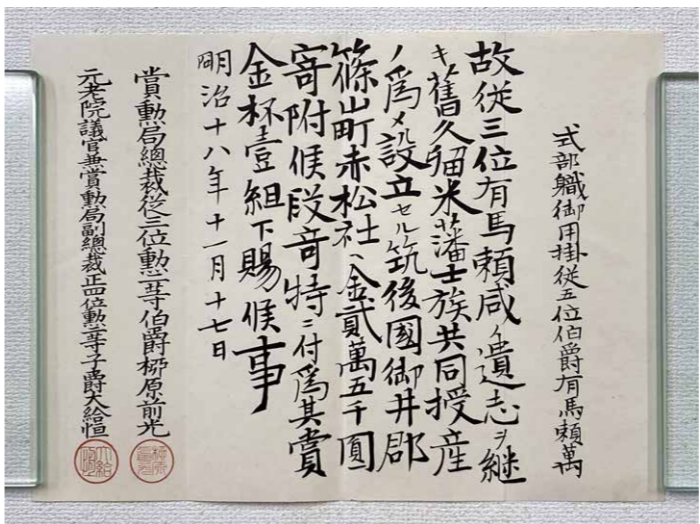 式部職御用掛従五位伯爵有馬頼萬
故従三位有馬頼咸ノ遺志ヲ継
キ舊久留米藩士族共同授産
ノ為メ設立セル筑後國御井郡
篠山町赤松社ヘ金貳萬五千圓
寄附候段奇特ニ付為其賞
金杯壹組下賜候事
明治十八年十一月十七日
賞勲局總裁従三位勲一等伯爵栁原前光
元老院議官兼賞勲局副總裁正四位勲二等子爵大給恒